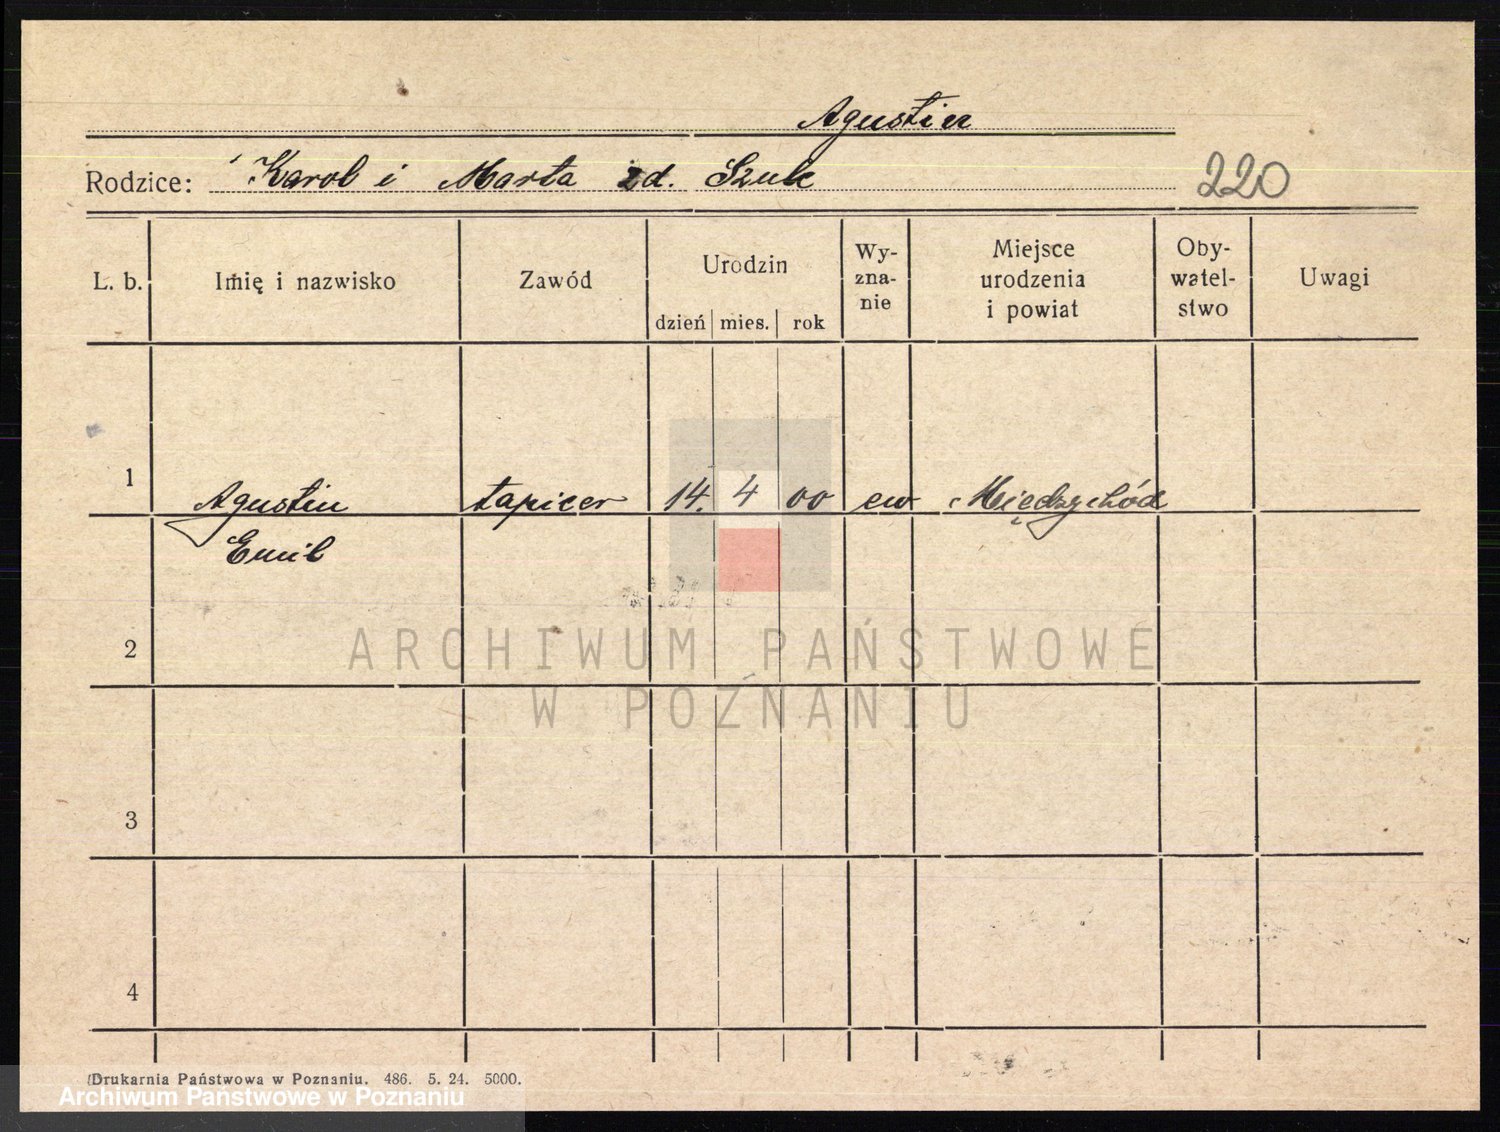 Agustin
Rodzice: Karol i Marta zd. Szulc
220
L. b. Imię i nazwisko Zawód Urodzin dzień mies. rok Wy-zna-nie Miejsce urodzenia i powiat Oby-watel-stwo Uwagi
1 Agustin tapicer 14. 4 00 ew Międzychód
Emil
2
ARCHIWUM PAŃSTWOWE
W POZNANIU
3
4
Drukarnia Państwowa w Poznaniu. 486. 5. 24. 5000.
Archiwum Państwowe w Poznaniu